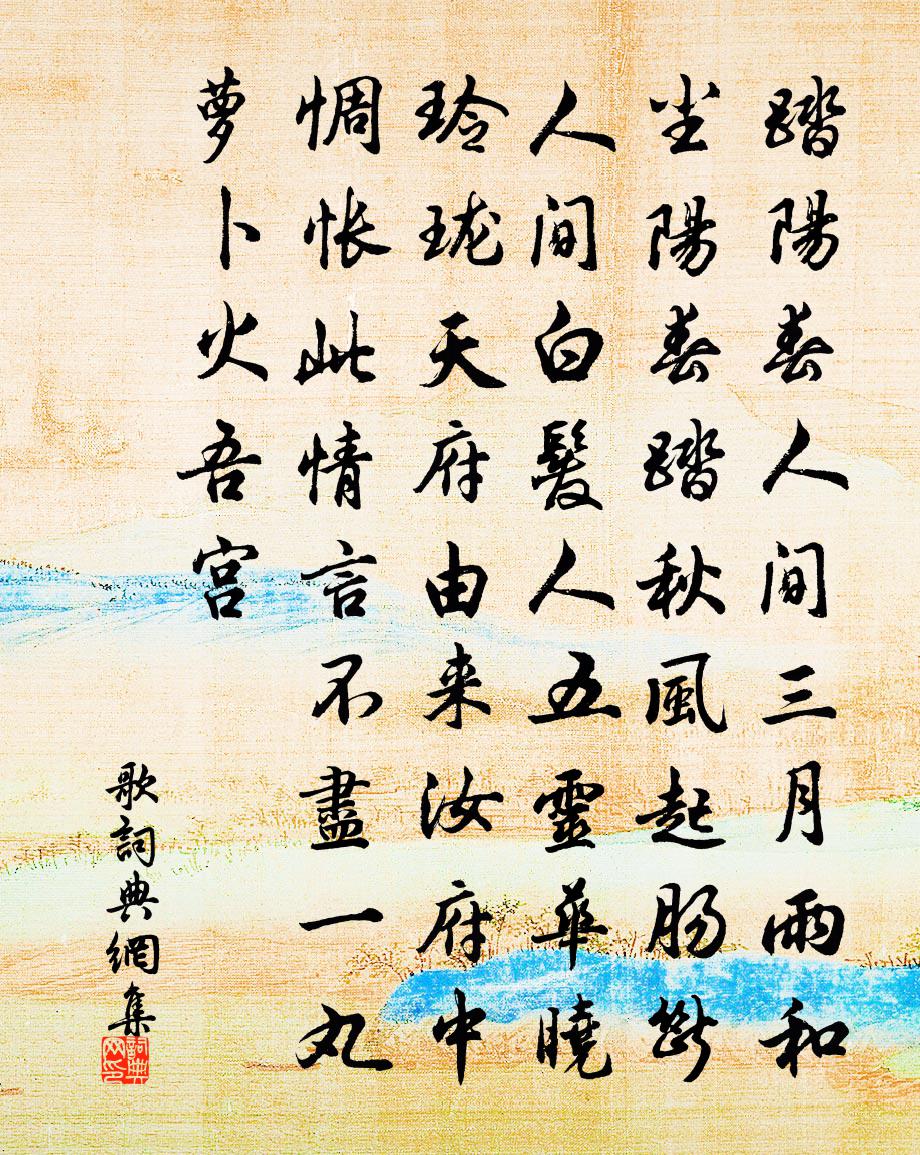 踏陽春人间三月雨和
尘陽春踏秋風起肠斷
人间白髮人五靈華曉
玲珑天府由来汝府中
惆怅此情言不盡一丸
萝卜火吾宮
歌詞典網集